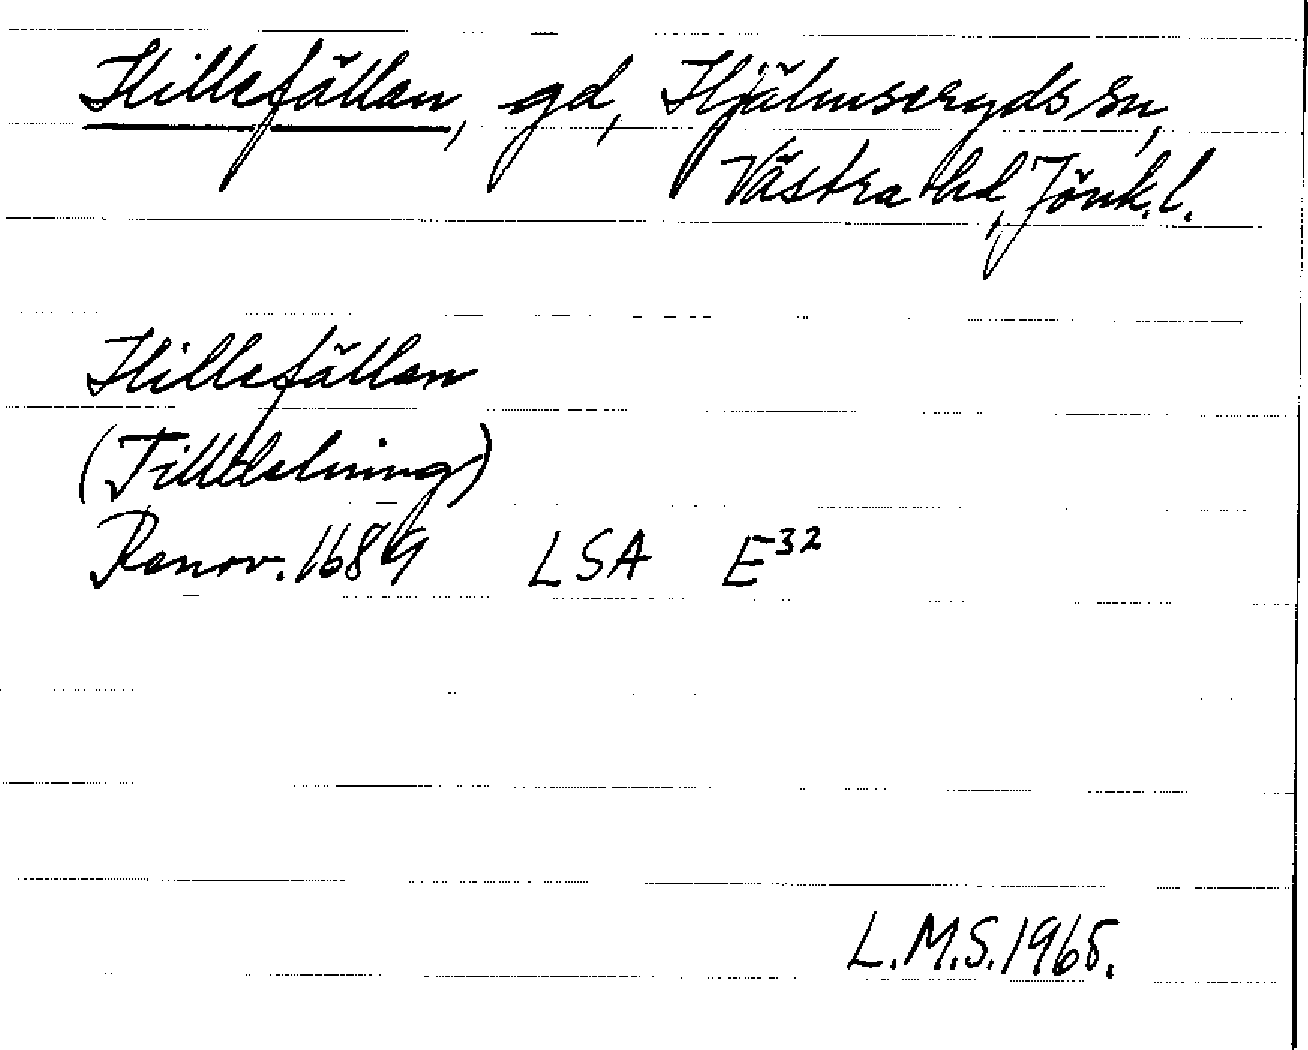 Hillefällan, gd, Hjälmseryds sn,
Västra hd, Jönk. l.
Hillefällan
(Tilldelning)
Renov. 1689 LSA E³²
L.M.S. 1968.